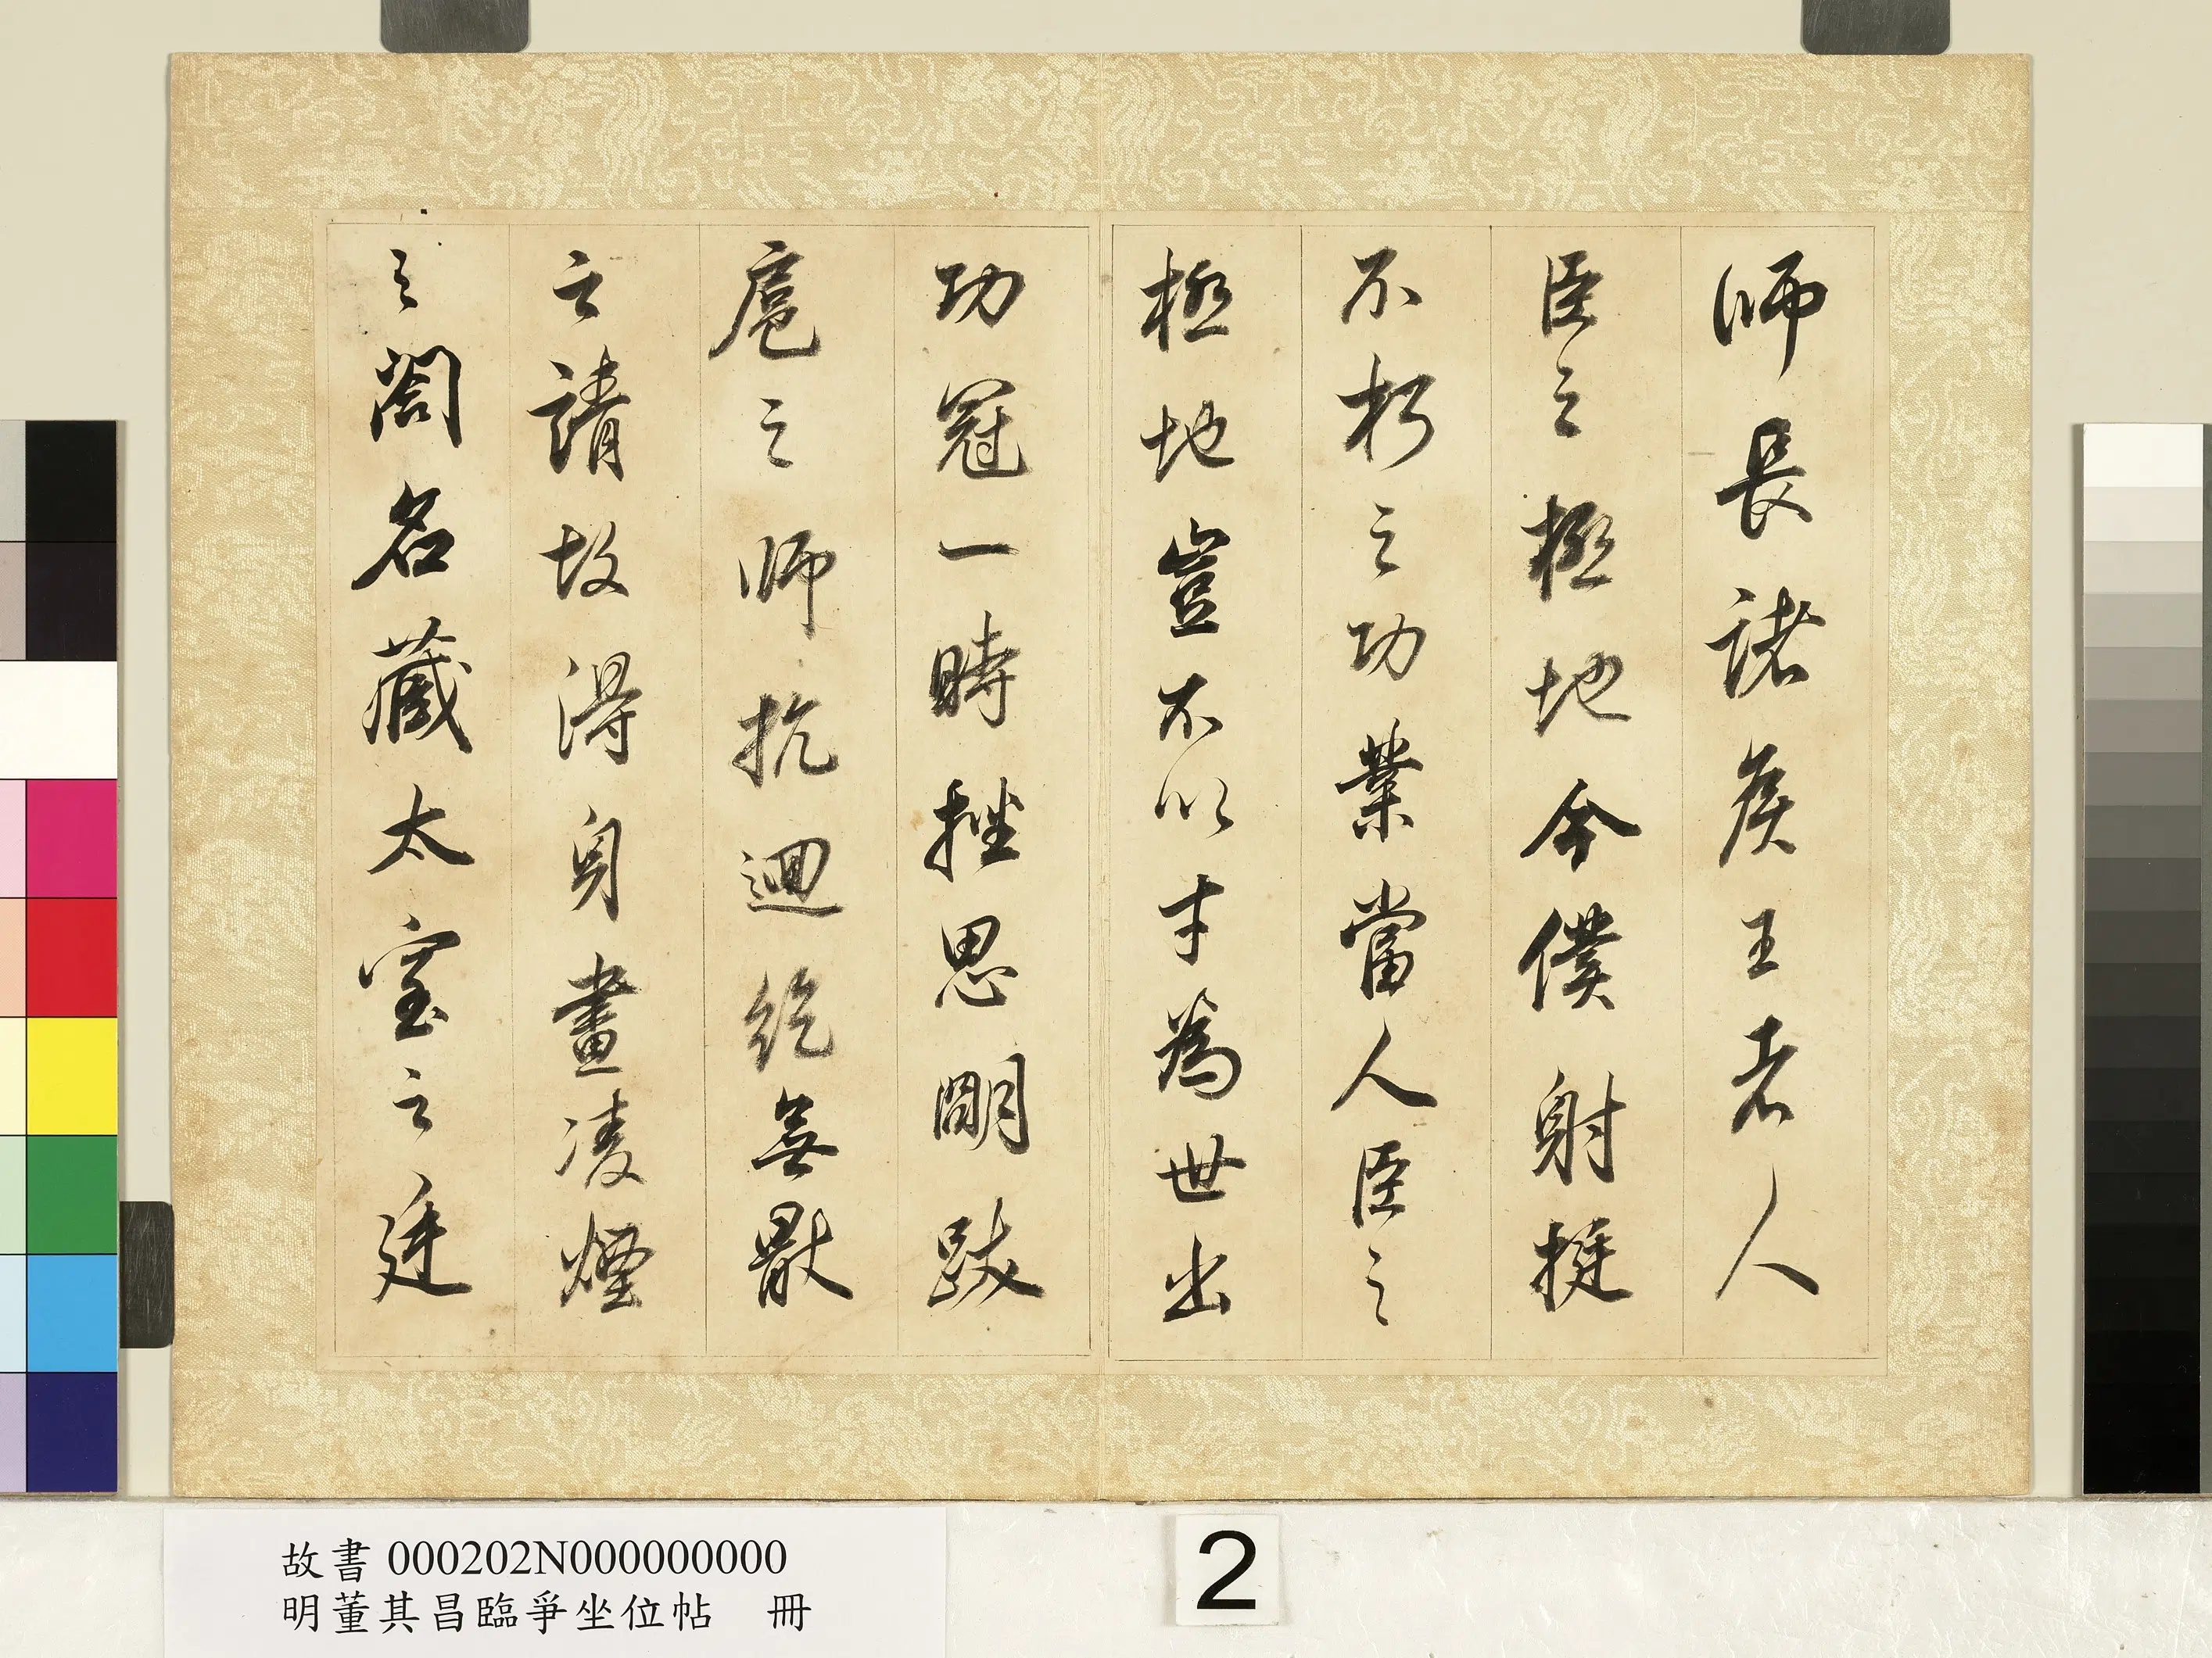 師長諸侯王者人
臣之極地今僕射挺
不朽之功業當人臣之
極地豈不以才為世出
功冠一時挫思明跋
扈之師抗迴紇無厭
之請故得身畫凌煙
之閣名藏太室之廷
故書 000202N000000000
明董其昌臨爭坐位帖 冊
2